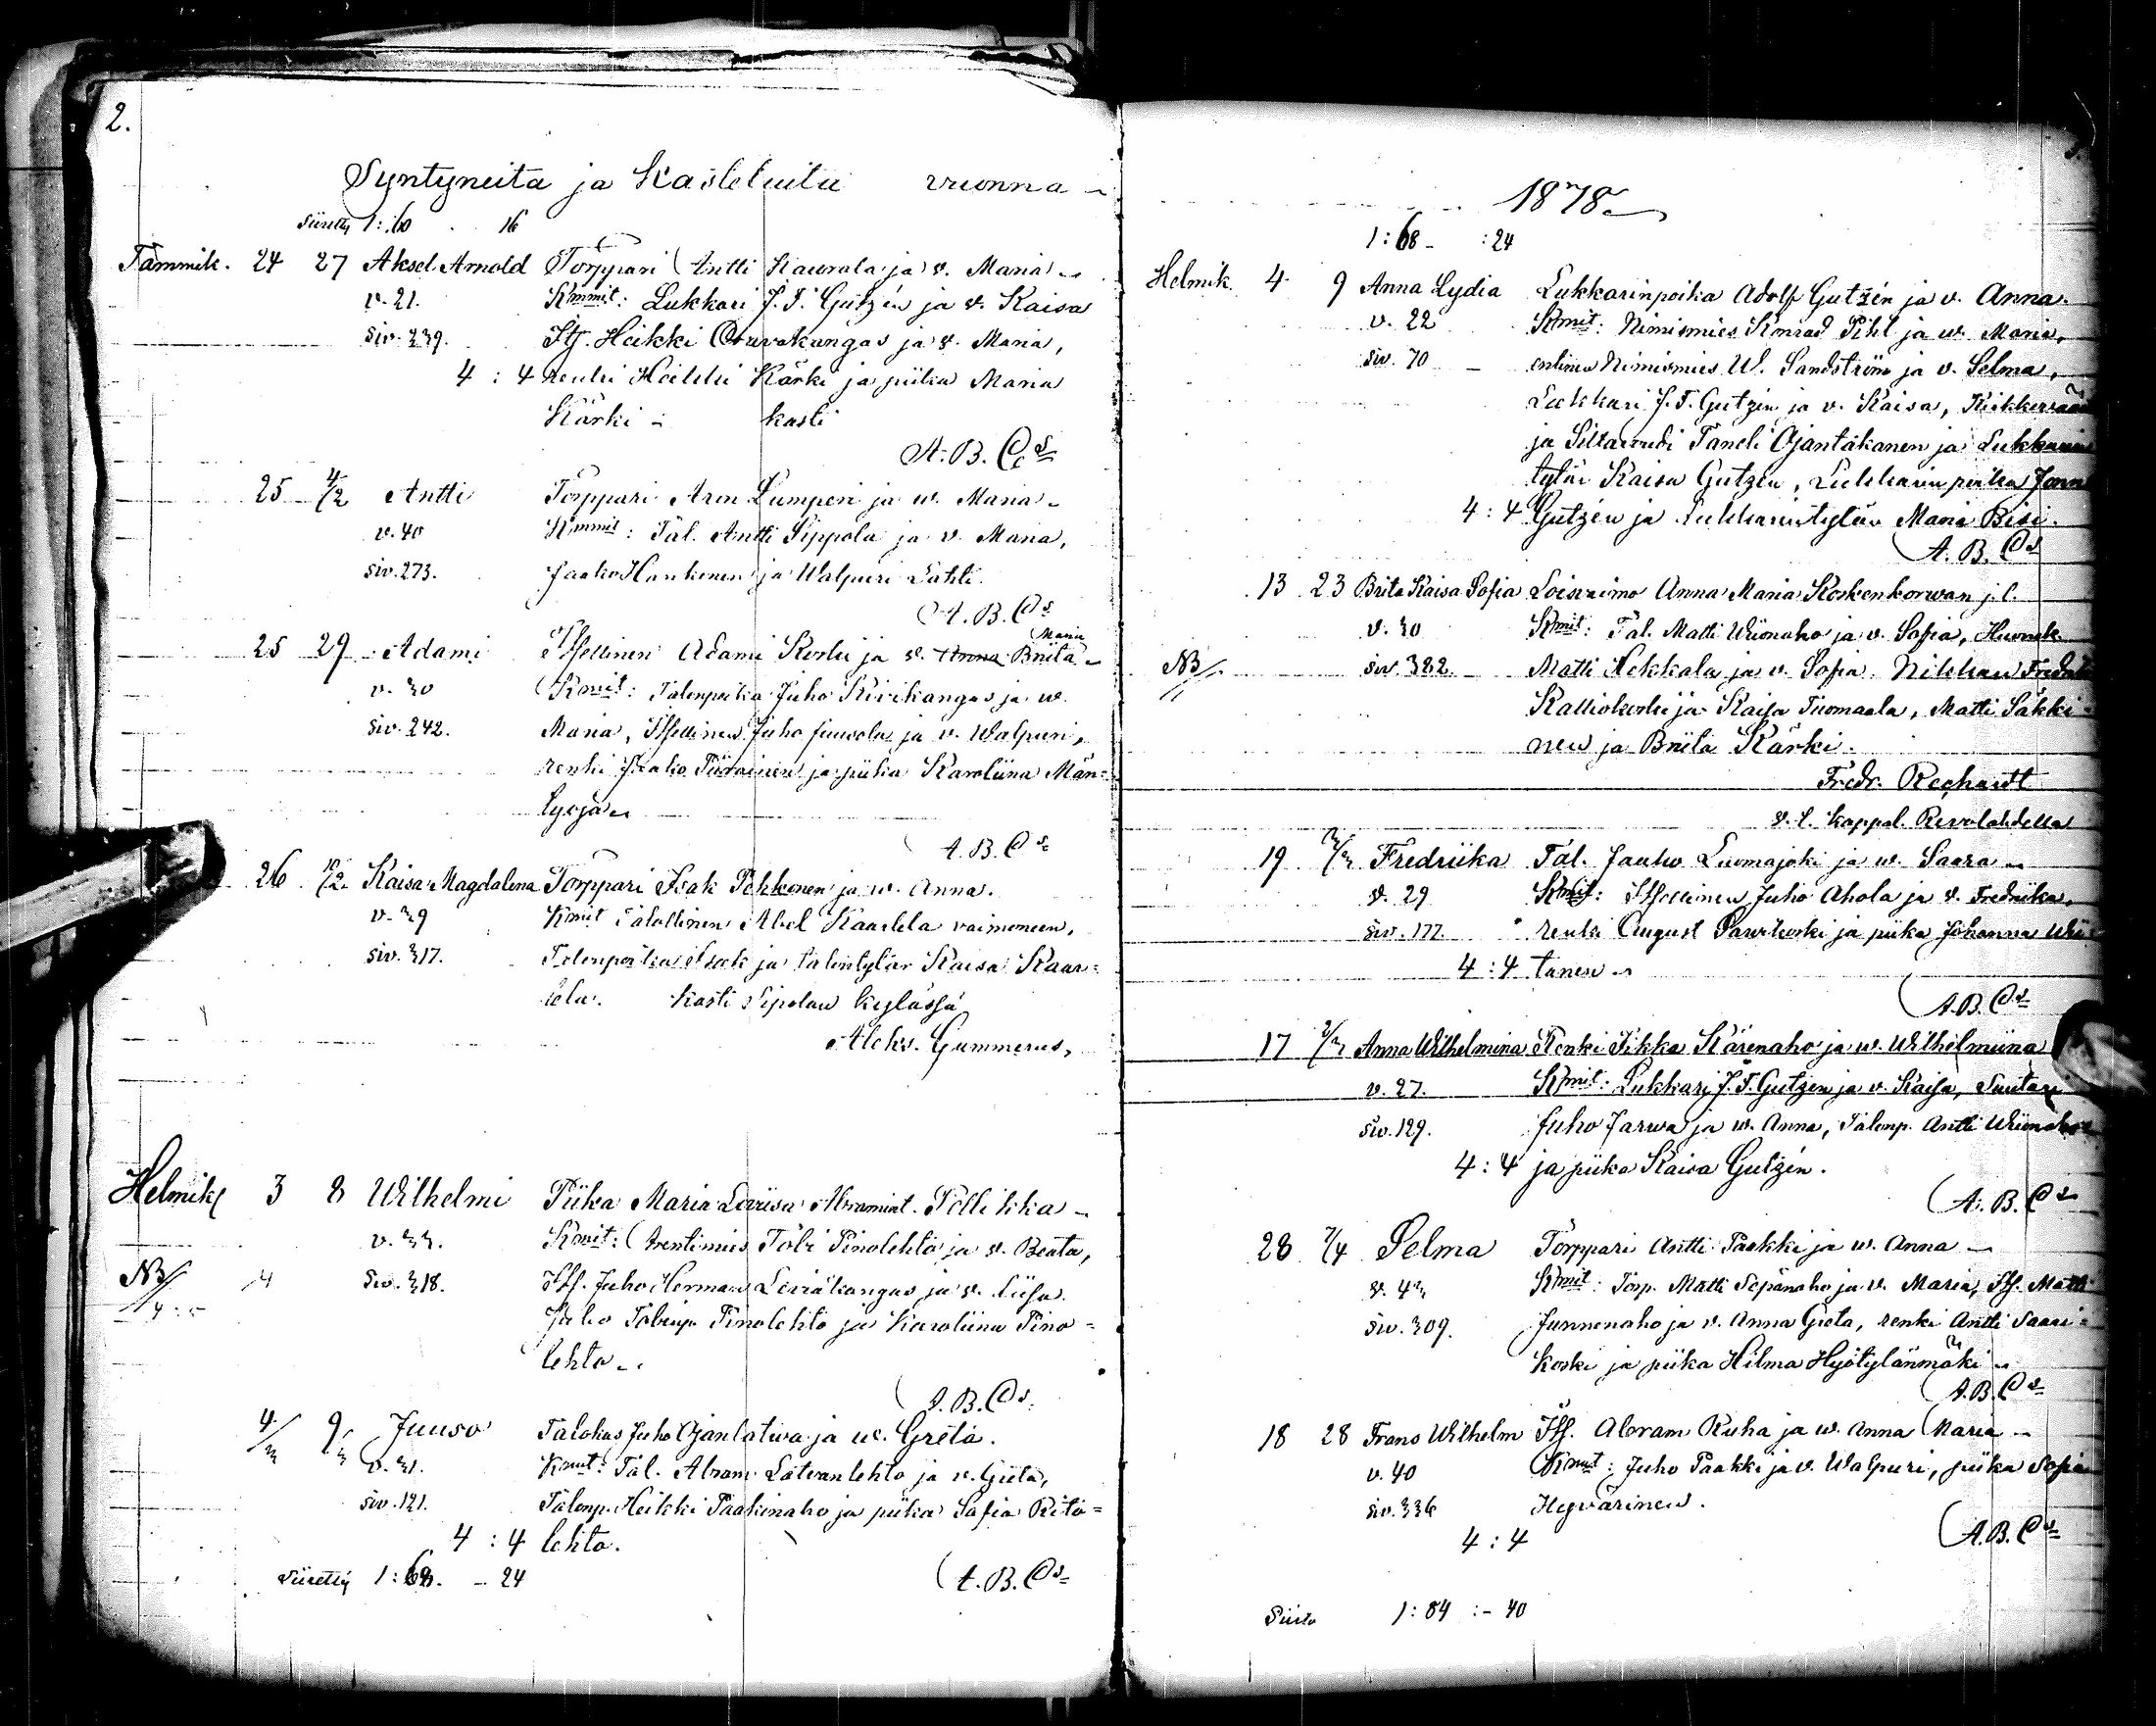 2.
Syntyneitä ja Kastetuita vuonna
Siiretty 1:60 16
Tammik. 24 27 Aksel Arnold Torppari Antti Kaurala ja v. Maria
v. 21. Kmmit: Lukkari J. F. Gutzén ja v. Kaisa
Siv. 239. Itj. Heikki ja v. Maria,
4 : 4 renki Heikki Kärki ja piika Maria
Kärki - kasti
A. B. Cs
25 4/2 Antti Torppari Aron Lumperi ja w. Maria
v. 40 Kmmit: Tal. Antti Sippola ja v. Maria,
siv. 273. Jaako Hankonen ja Walpuri Lahti.
A. B. Cs
25 29 Adami Itsellinen Adami Korhi ja v. Anna Maria Briita
v. 30 Kmit: Talonpoika Juho Kivikangas ja w.
siv. 242. Maria, Itsellinen Juho Juusola ja v. Walpuri,
renki Jaako Piirainen ja piika Karoliina Män-
tyoja
A. B. Cs
26 10/2 Kaisa Magdalena Torppari Isak Pehkonen ja w. Anna.
v. 39 Kmit Talollinen Abel Kaarlela vaimoneen,
siv. 317. Talonpoika Isak ja talontytär Kaisa Kaar-
lela. Kasti Sipolan kylässä
Aleks. Gummerus,
Helmik 3 8 Wilhelmi Piika Maria Loviisa Abramint. Pollikka
v. 33. Kmit: Arentimies Tobi Pinolehto ja v. Beata,
NB 4 Siv. 318. Its. Juho Herman Leviäkangas ja v. Liisa.
Juho Tobinp. Pinolehto ja Karoliina Pino-
lehto
A. B. Cs
4/3 9/3 Juuso Talokas Juho Ojanlatva ja w. Greta.
v. 31. Kmit: Tal. Abram Latvanlehto ja v. Greta,
siv. 121. Talonp. Heikki Paakinaho ja piika Safia Rito-
4 : 4 lehto.
A. B. Cs
siiretty 1:68. - 24
3.
1878
1:68 - : 24
Helmik. 4 9 Anna Lydia Lukkarinpoika Adolf Gutzén ja v. Anna
v. 22 Kmit: Nimismies Konrad Pihl ja w. Maria,
siv. 70 entinen Nimismies W. Sandström ja v. Selma,
Lukkari J. F. Gutzén ja v. Kaisa,
ja Siltavouti Taneli Ojantakanen ja Lukkarin
tytär Kaisa Gutzén, Lukkarin poika
4 : 4 Gutzén ja Lukkarintytär Maria Bisi.
A. B. Cs
13 23 Brita Kaisa Sofia Loisvaimo Anna Maria Koskenkorwan j. l.
v. 30 Kmit: Tal. Matti Wiionaho ja v. Sofia, Huonek.
NB siv. 382. Matti Nekkala ja v. Sofia.
Kalliokorki ja Kaisa Tuomaala, Matti Säkki-
nen ja Briita Kärki.
Fredr. Rechardt
v. t. kappal. Revolahdella
19 3/3 Fredriika Tal. Jaako Luomajoki ja w. Saara
v. 29 Kmit: Itsellinen Juho Ahola ja v. Fredriika,
siv. 177. renki August Paurikoski ja piika Johanna Wii-
4 : 4 tanen
A. B. Cs
17 2/3 Anna Wilhelmina Renki Pikka Kärenaho ja w. Wilhelmiina
v. 27. Kmit: Lukkari J. F. Gutzen ja v. Kaisa, Suutari
siv. 129. Juho Jarwa ja w. Anna, Talonp. Antti Wiionaho
4 : 4 ja piika Kaisa Gutzén.
A. B. Cs
28 7/4 Selma Torppari Antti Paakki ja w. Anna
v. 43 Kmit: Torp. Matti Sepänaho ja v. Maria, Its. Matti
siv. 309. Junnonaho ja v. Anna Greta, renki Antti Saari-
koski ja piika Hilma Hyötylänmäki
A. B. Cs
18 28 Frans Wilhelm Its. Abram Ruha ja w. Anna Maria
v. 40 Kmit: Juho Paakki ja v. Walpuri, piika Sofia
siv. 336 Hyvärinen.
4 : 4 A. B. Cs
Siirto 1:84 :- 40